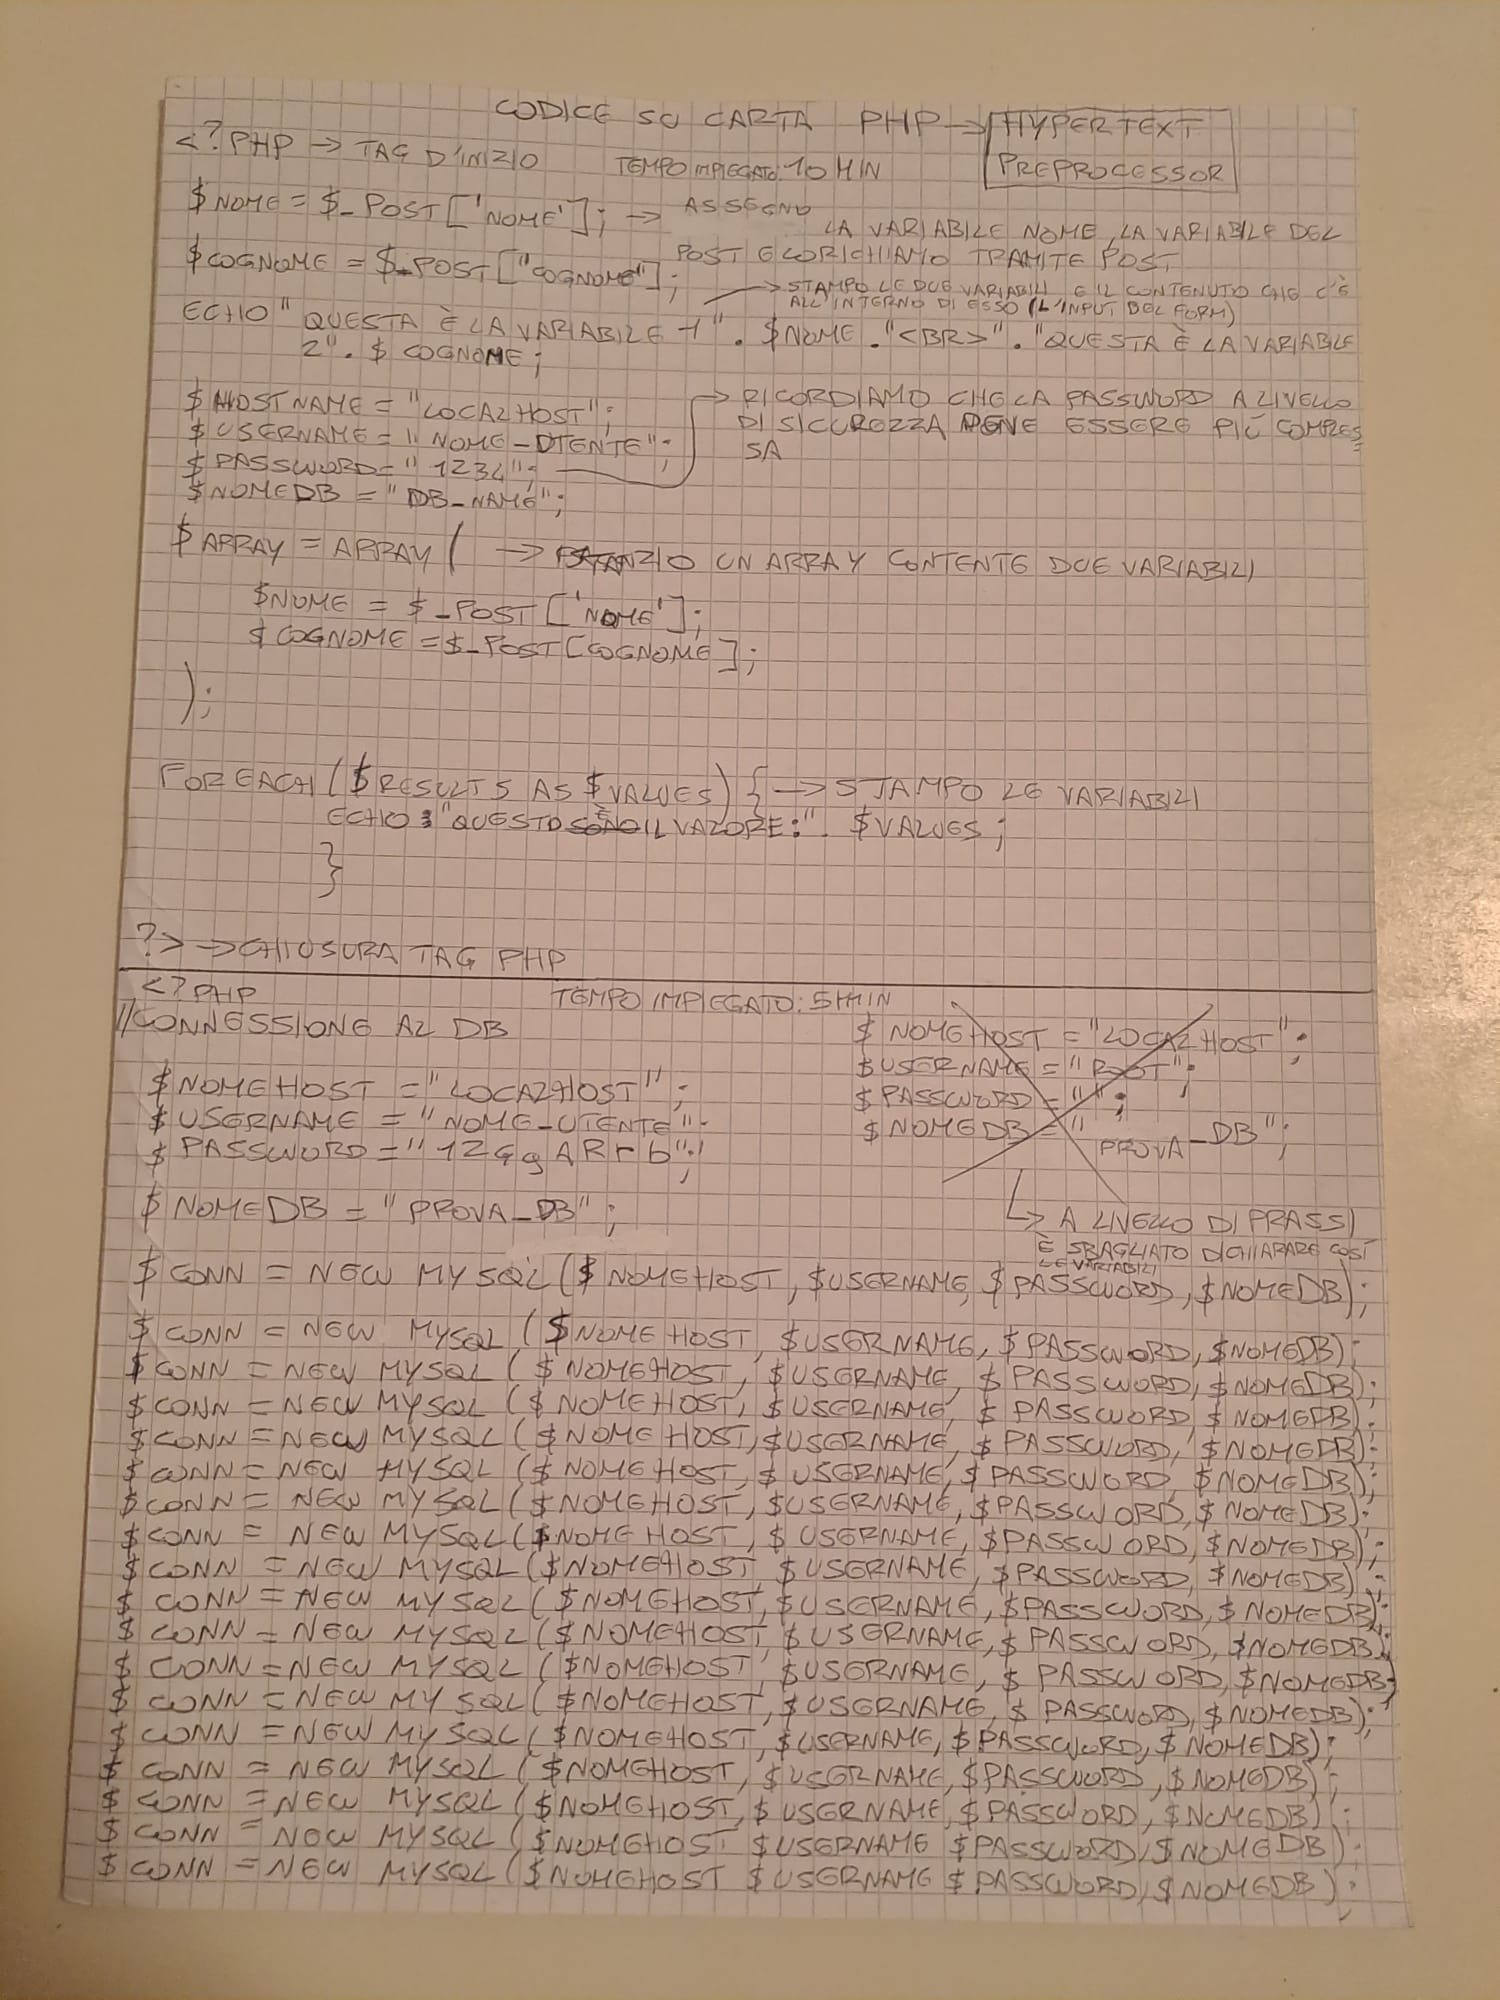 CODICE SU CARTA PHP → HYPERTEXT
PREPROCESSOR
<?PHP → TAG D'INIZIO TEMPO IMPIEGATO: 10 MIN
$NOME = $_POST['NOME']; → ASSEGNO
LA VARIABILE NOME, LA VARIABILE DEL
POST E LO RICHIAMO TRAMITE POST
$COGNOME = $_POST["COGNOME"];
→ STAMPO LE DUE VARIABILI E IL CONTENUTO CHE C'È
ALL'INTERNO DI ESSO (L'INPUT DEL FORM)
ECHO "QUESTA È LA VARIABILE 1". $NOME ."<BR>". "QUESTA È LA VARIABILE
2". $COGNOME;
$HOSTNAME = "LOCALHOST"; → RICORDIAMO CHE LA PASSWORD A LIVELLO
$USERNAME = "NOME_UTENTE"; DI SICUREZZA DEVE ESSERE PIÚ COMPLES
$PASSWORD = "1234"; SA
$NOMEDB = "DB_NAME";
$ARRAY = ARRAY ( → UN ARRAY CONTENTE DUE VARIABILI
$NOME = $_POST['NOME'];
$COGNOME = $_POST[COGNOME];
);
FOREACH ($RESULTS AS $VALUES) { → STAMPO LE VARIABILI
ECHO : "QUESTO È IL VALORE:". $VALUES;
}
?> → CHIUSURA TAG PHP
<?PHP TEMPO IMPIEGATO: 5 MIN
//CONNESSIONE AL DB
$NOMEHOST = "LOCALHOST";
$USERNAME = "ROOT";
$PASSWORD = "";
$NOMEDB = "PROVA_DB";
→ A LIVELLO DI PRASSI
È SBAGLIATO DICHIARARE COSÍ
LE VARIABILI
$NOMEHOST = "LOCALHOST";
$USERNAME = "NOME_UTENTE";
$PASSWORD = "12GgARrb";
$NOMEDB = "PROVA_DB";
$CONN = NEW MYSQL($NOMEHOST, $USERNAME, $PASSWORD, $NOMEDB);
$CONN = NEW MYSQL ($NOMEHOST, $USERNAME, $PASSWORD, $NOMEDB);
$CONN = NEW MYSQL ($NOMEHOST, $USERNAME, $PASSWORD, $NOMEDB);
$CONN = NEW MYSQL ($NOMEHOST, $USERNAME, $PASSWORD, $NOMEDB);
$CONN = NEW MYSQL ($NOMEHOST, $USERNAME, $PASSWORD, $NOMEDB);
$CONN = NEW MYSQL ($NOMEHOST, $USERNAME, $PASSWORD, $NOMEDB);
$CONN = NEW MYSQL ($NOMEHOST, $USERNAME, $PASSWORD, $NOMEDB);
$CONN = NEW MYSQL($NOMEHOST, $USERNAME, $PASSWORD, $NOMEDB);
$CONN = NEW MYSQL($NOMEHOST, $USERNAME, $PASSWORD, $NOMEDB);
$CONN = NEW MYSQL($NOMEHOST, $USERNAME, $PASSWORD, $NOMEDB);
$CONN = NEW MYSQL($NOMEHOST, $USERNAME, $PASSWORD, $NOMEDB);
$CONN = NEW MYSQL ($NOMEHOST, $USERNAME, $PASSWORD, $NOMEDB);
$CONN = NEW MYSQL($NOMEHOST, $USERNAME, $PASSWORD, $NOMEDB);
$CONN = NEW MYSQL($NOMEHOST, $USERNAME, $PASSWORD, $NOMEDB);
$CONN = NEW MYSQL ($NOMEHOST, $USERNAME, $PASSWORD, $NOMEDB);
$CONN = NEW MYSQL($NOMEHOST, $USERNAME, $PASSWORD, $NOMEDB);
$CONN = NEW MYSQL($NOMEHOST $USERNAME $PASSWORD, $NOMEDB);
$CONN = NEW MYSQL($NOMEHOST $USERNAME $PASSWORD, $NOMEDB);